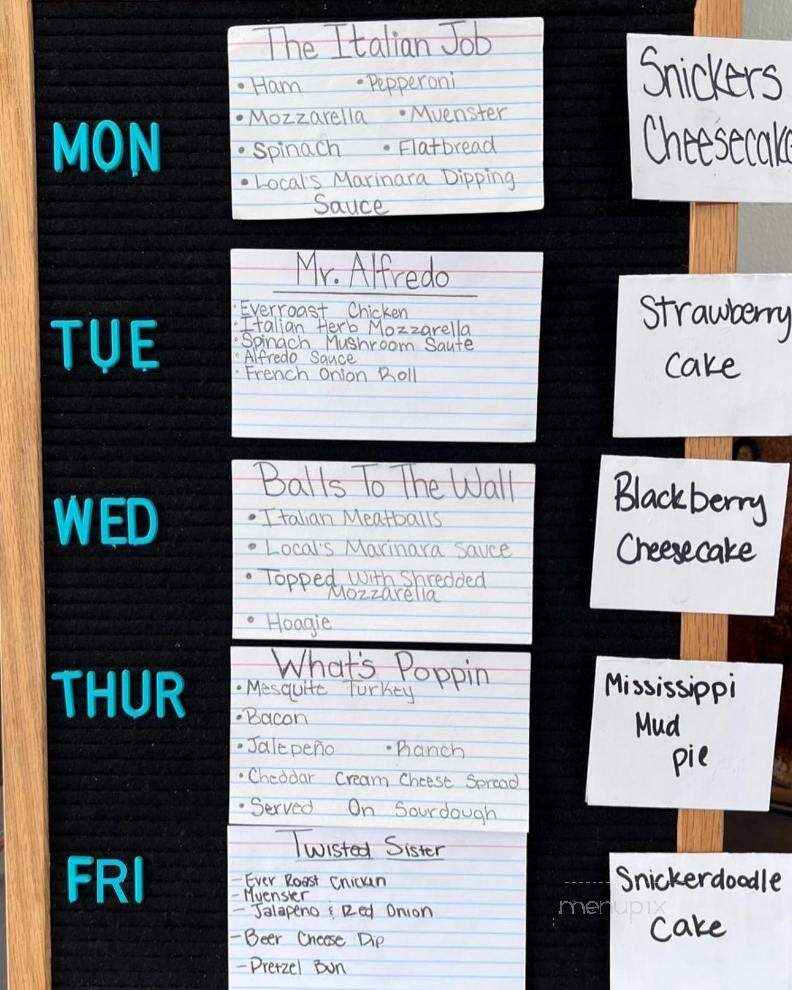 MON
The Italian Job
• Ham • Pepperoni
• Mozzarella • Muenster
• Spinach • Flatbread
• Local's Marinara Dipping
Sauce
Snickers
Cheesecake
TUE
Mr. Alfredo
• Everroast Chicken
• Italian Herb Mozzarella
• Spinach Mushroom Saute
• Alfredo Sauce
• French Onion Roll
Strawberry
Cake
WED
Balls To The Wall
• Italian Meatballs
• Local's Marinara Sauce
• Topped With Shredded
Mozzarella
• Hoagie
Blackberry
Cheesecake
THUR
What's Poppin
• Mesquite Turkey
• Bacon
• Jalepeño • Ranch
• Cheddar Cream Cheese Spread
• Served On Sourdough
Mississippi
Mud
pie
FRI
Twisted Sister
- Ever Roast Chicken
- Muenster
- Jalapeño & Red Onion
- Beer Cheese Dip
- Pretzel Bun
Snickerdoodle
Cake
menupix